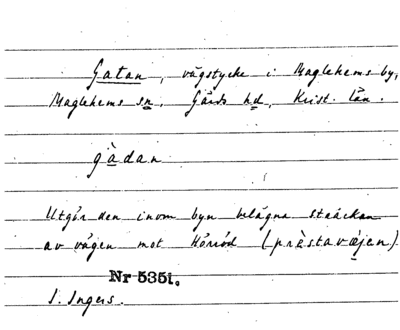 Gatan, vägstycke i Maglehems by,
Maglehems sn. Gärds hd, Krist. län.
gàdan
Utgör den inom byn belägna sträckan
av vägen mot Hörröd (prèstavæjen).
Nr 5351.
I. Ingers.